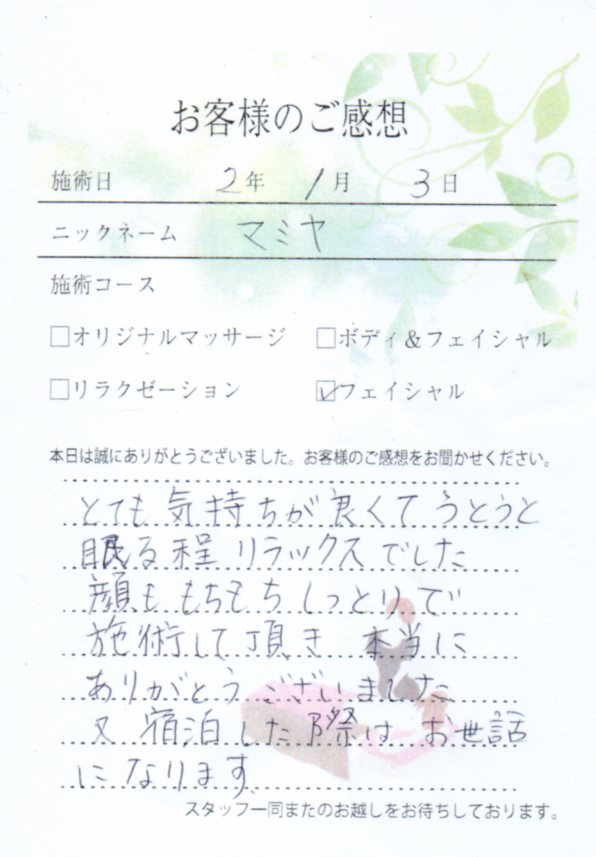 お客様のご感想
施術日 2年 1月 3日
ニックネーム マミヤ
施術コース
□オリジナルマッサージ □ボディ＆フェイシャル
□リラクゼーション ☑フェイシャル
本日は誠にありがとうございました。お客様のご感想をお聞かせください。
とても気持ちが良くてうとうと
眠る程リラックスでした
顔ももちもちしっとりで
施術して頂き 本当に
ありがとうございました
又宿泊した際はお世話
になります。
スタッフ一同またのお越しをお待ちしております。